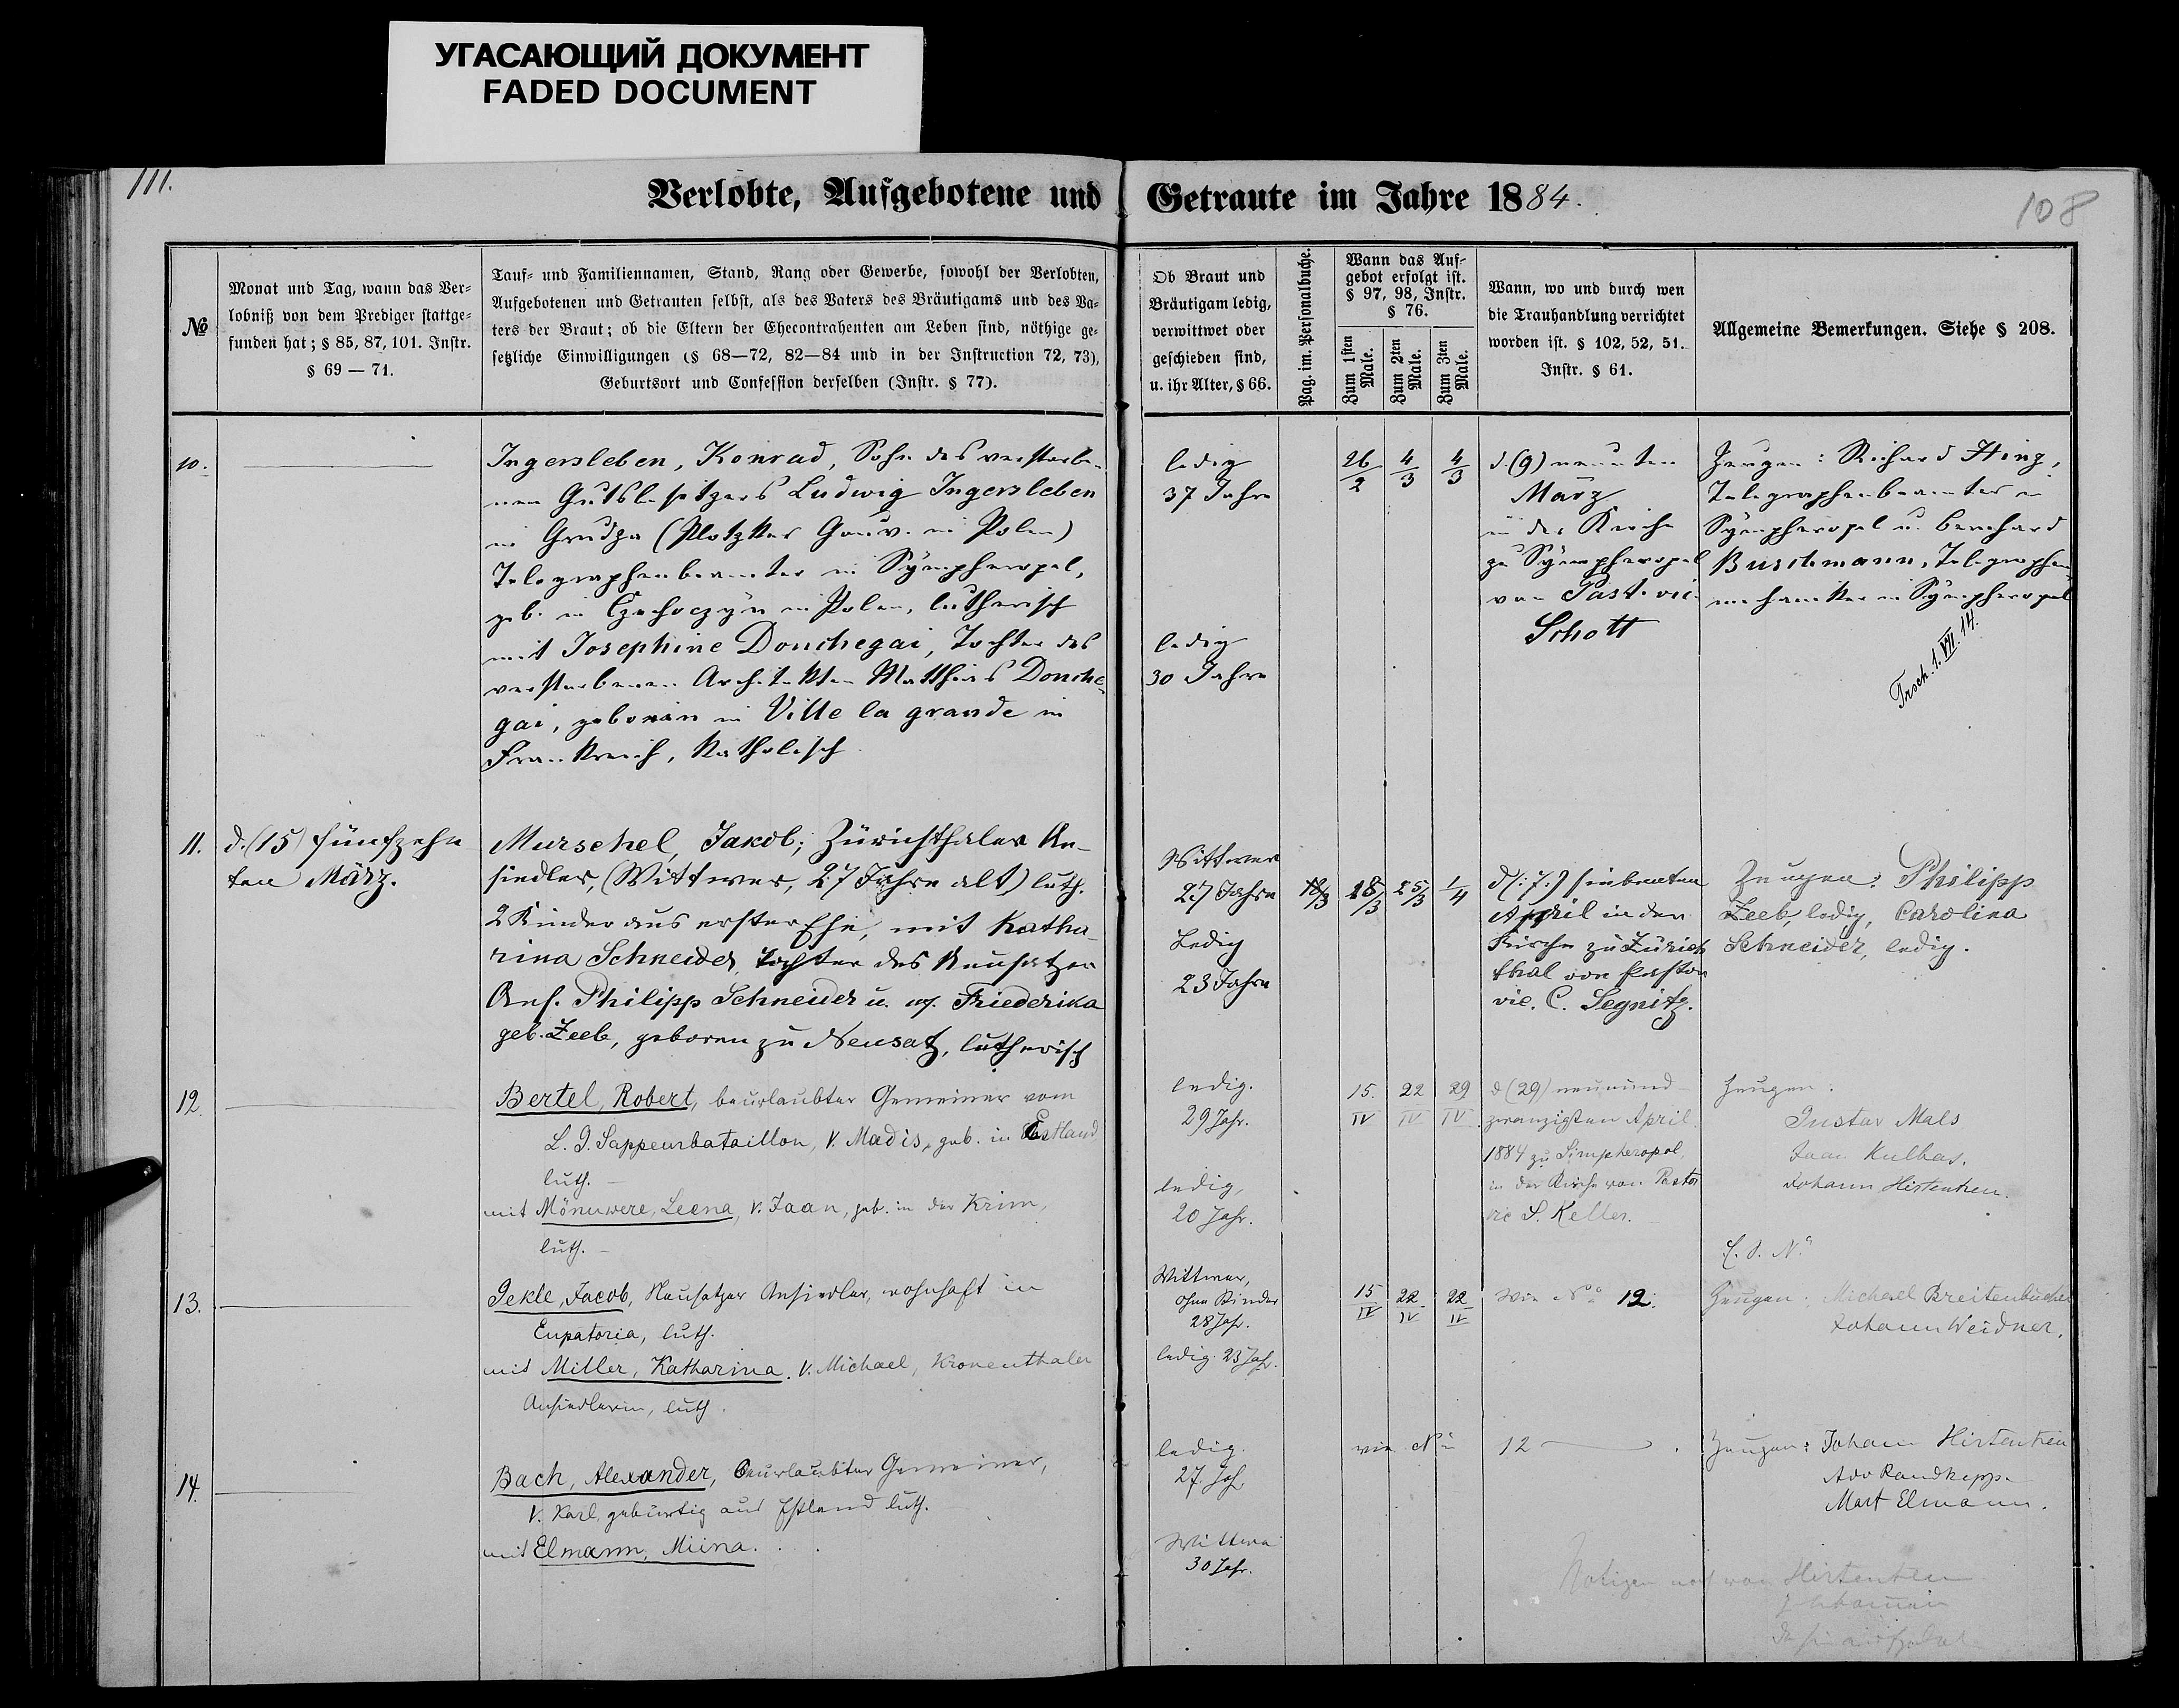 УГАСАЮЩИЙ ДОКУМЕНТ
FADED DOCUMENT
111.
108
Verlobte, Aufgebotene und Getraute im Jahre 1884.
№
Monat und Tag, wann das Ver-
lobniß von dem Prediger stattge-
funden hat; § 85, 87, 101. Instr.
§ 69 — 71.
Tauf- und Familiennamen, Stand, Rang oder Gewerbe, sowohl der Verlobten,
Aufgebotenen und Getrauten selbst, als des Vaters des Bräutigams und des Va-
ters der Braut; ob die Eltern der Ehecontrahenten am Leben sind, nöthige ge-
setzliche Einwilligungen (§ 68—72, 82—84 und in der Instruction 72, 73),
Geburtsort und Confession derselben (Instr. § 77).
Ob Braut und
Bräutigam ledig,
verwittwet oder
geschieden sind,
u. ihr Alter, § 66.
Pag. im. Personalbuche.
Wann das Auf-
gebot erfolgt ist.
§ 97, 98, Instr.
§ 76.
Zum 1sten
Male.
Zum 2ten
Male.
Zum 3ten
Male.
Wann, wo und durch wen
die Trauhandlung verrichtet
worden ist. § 102, 52, 51.
Instr. § 61.
Allgemeine Bemerkungen. Siehe § 208.
10.
Ingersleben, Konrad, Sohn des verstorbe-
nen Gutsbesitzers Ludwig Ingersleben
in Grudza (Plotzker Gouv. in Polen)
Telegraphenbeamter in Sympheropol,
geb. in in Polen, lutherisch
mit Josephine Douchegai, Tochter des
verstorbenen Architekten Matthias Douche-
gai, geboren in Ville la grande in
Frankreich, Katholisch
ledig
37 Jahre
ledig
30 Jahre
26/2
4/3
4/3
d. (9) neunten
März
in der Kirche
zu Sympheropol
von Past. vic.
Schott
Zeugen: Richard Hinz,
Telegraphenbeamter in
Sympheropol u. Bernhard
Buschmann, Telegraphen-
mechaniker in Sympheropol
Trsch. 1. VII. 14.
11.
d. (15) fünfzehn
ten März.
Murschel, Jakob; Zürichthaler An-
siedler, (Wittwer, 27 Jahre alt) luth.
2 Kinder aus erster Ehe, mit Katha-
rina Schneider, Tochter des Neusatzer
Ans. Philipp Schneider u. Friederika
geb. Zeeb, geboren zu Neusatz, lutherisch
Wittwer
27 Jahre
Ledig
23 Jahre
18/3
18/3
25/3
1/4
d (:7:) siebenten
April in der
Kirche zu Zürich
thal von Pastor
vic. C. Segnitz.
Zeugen: Philipp
Zeeb, ledig, Carolina
Schneider, ledig.
12.
Bertel, Robert, beurlaubter Gemeiner vom
L. G. Sappeurbataillon, V. Madis, geb. in Estland
luth. –
mit Mönuwere, Leena, V. Jaan, geb. in der Krim,
luth. –
ledig.
29 Jahr.
ledig,
20 Jahr.
15. IV
22 IV
29 IV
d (29) neunund-
zwanzigsten April.
1884 zu Simpheropol,
in der Kirche von Pastor
vic S. Keller.
Zeugen:
Gustav Mals
Jaan Kulbas.
Johann Hirtentreu.
13.
Jekle, Jacob, Neusatzer Ansiedler, wohnhaft in
Eupatoria, luth.
mit Miller, Katharina, V. Michael, Kronenthaler
Ansiedlerin, luth.
Wittwer,
ohne Kinder
28 Jahr.
ledig. 23 Jahr.
15 IV
22 IV
22 IV
Wie No 12.
Zeugen: Michael Breitenbücher
Johann Weidner.
14.
Bach, Alexander, beurlaubter Gemeiner,
V. Karl, gebürtig aus Estland luth.
mit Elmann, Miina. . . .
ledig.
27. Jahr
Wittwe
30 Jahr.
wie No 12
Zeugen: Johann Hirtentreu
Ado Randkepp
Mart Elmann.
Notizen noch von Hirtentreu